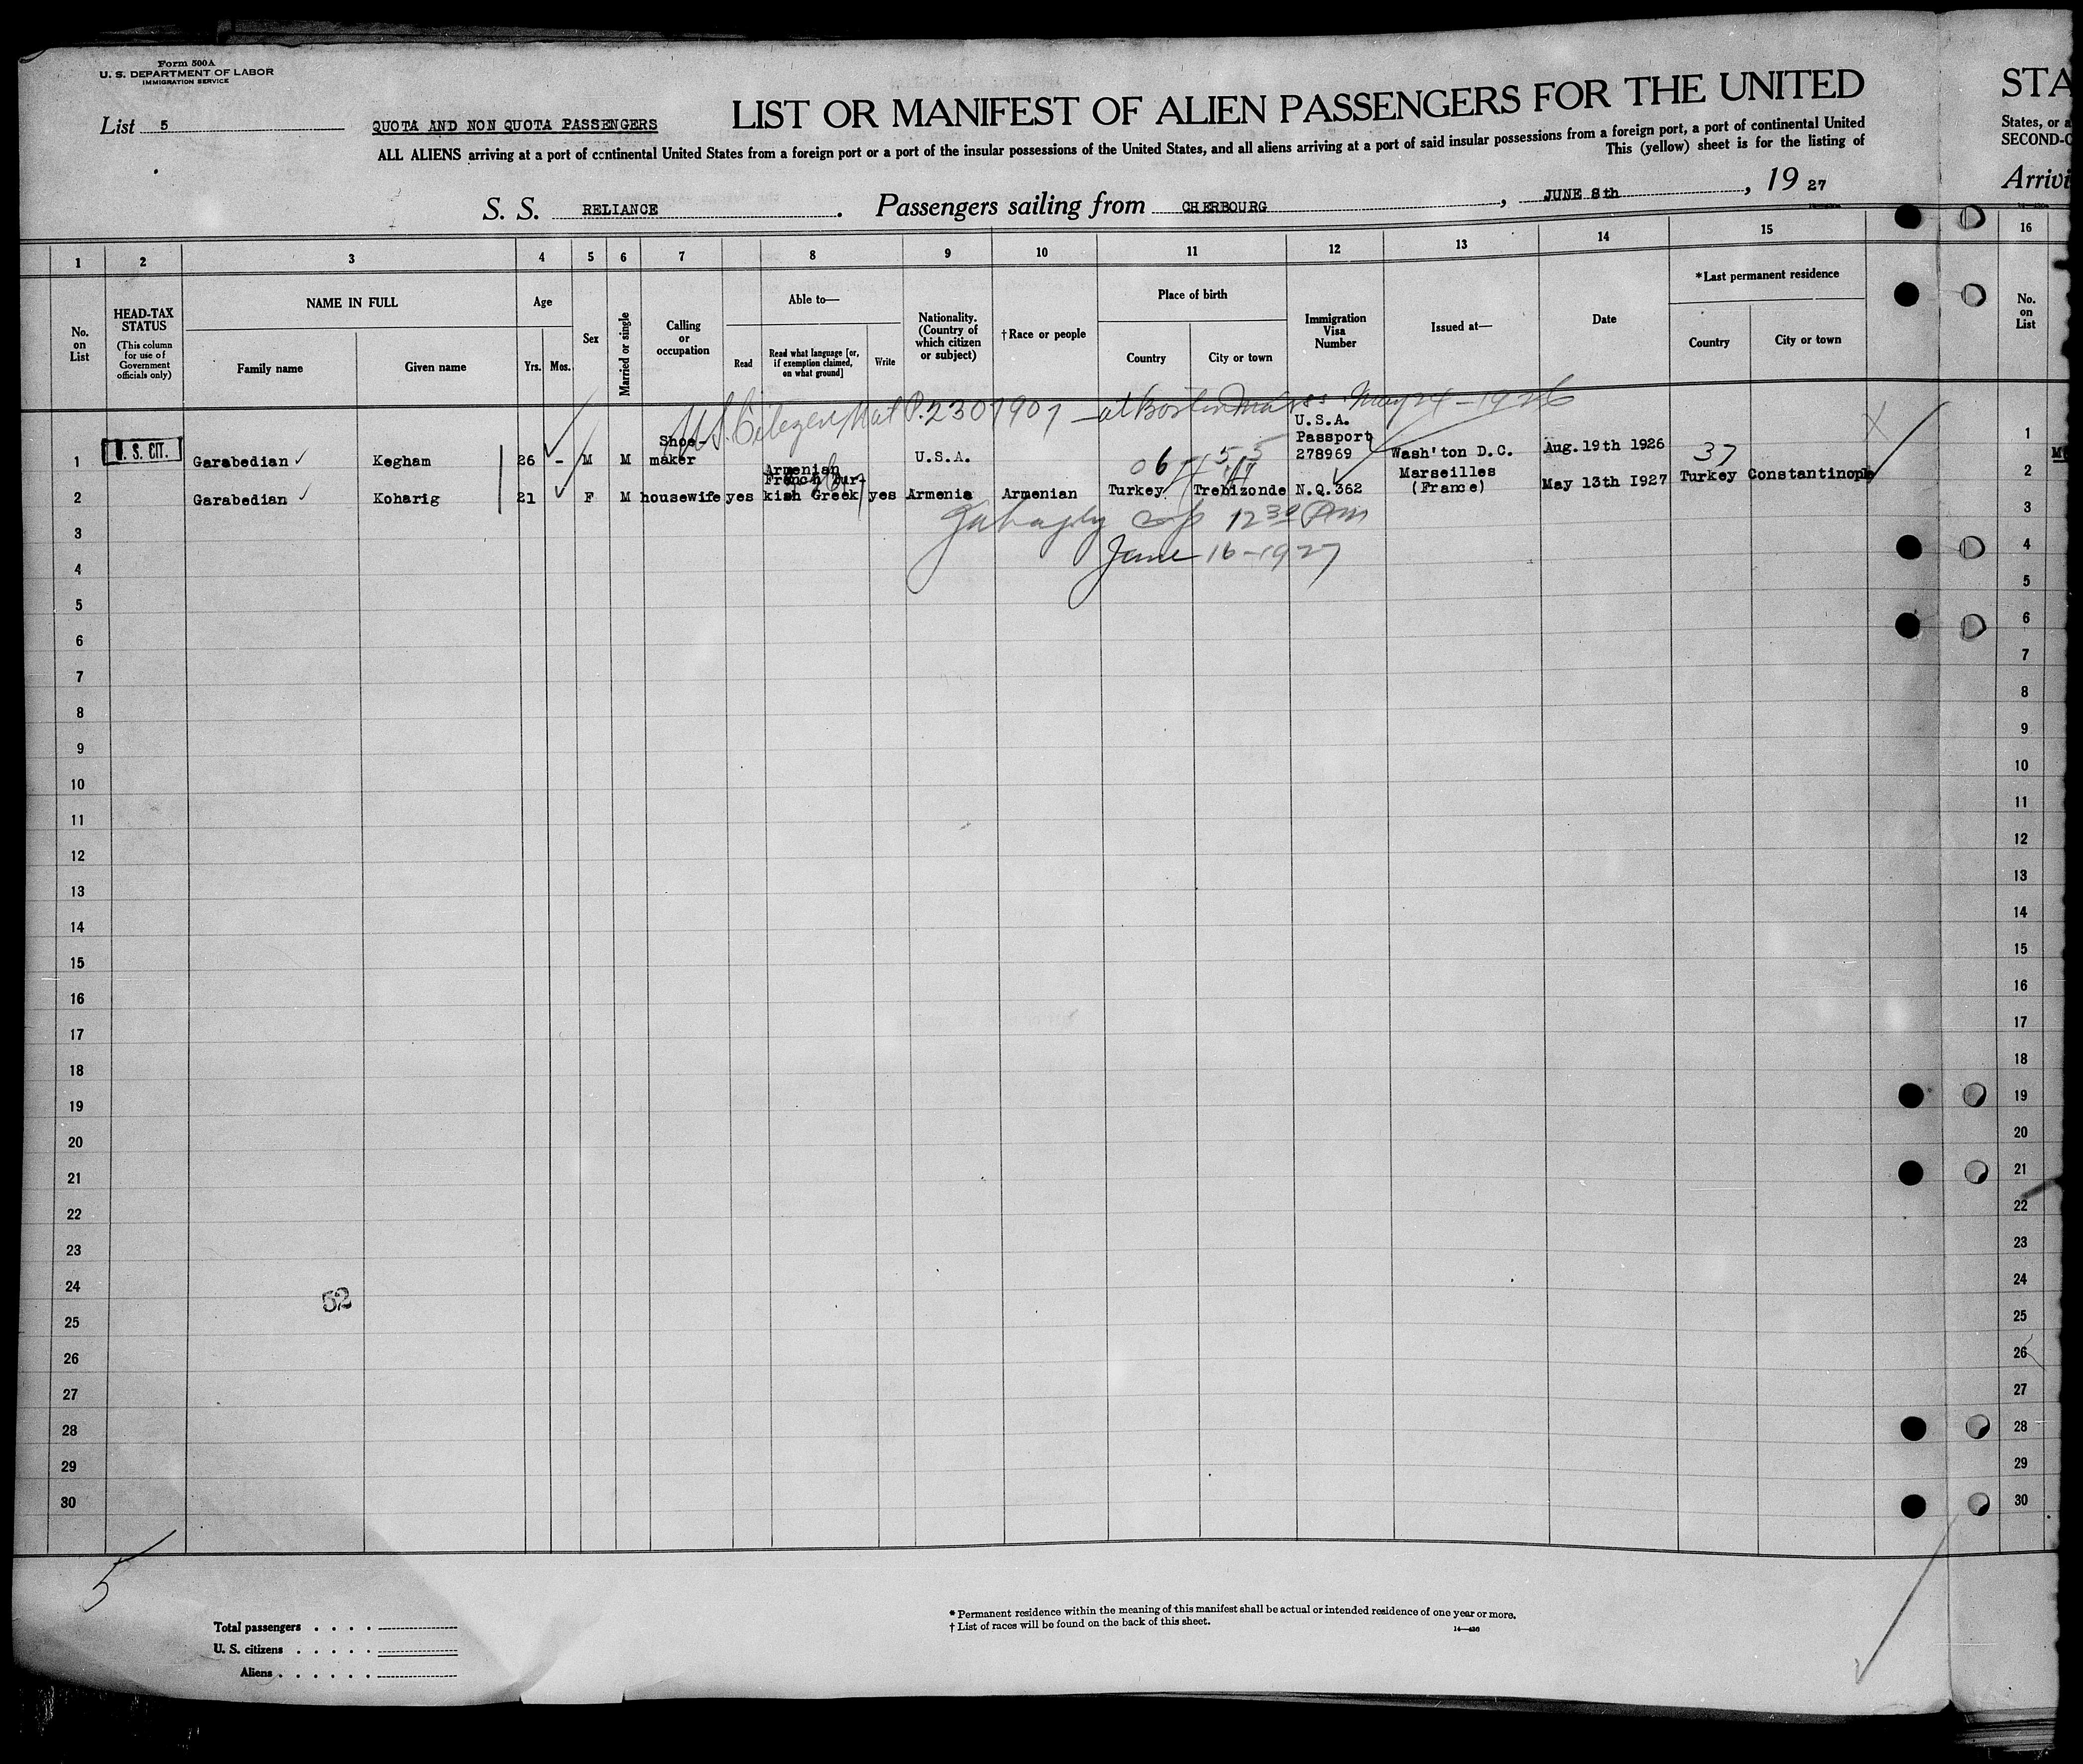 Form 500A
U. S. DEPARTMENT OF LABOR
IMMIGRATION SERVICE
List 5
QUOTA AND NON QUOTA PASSENGERS
LIST OR MANIFEST OF ALIEN PASSENGERS FOR THE UNITED
STA
ALL ALIENS arriving at a port of continental United States from a foreign port or a port of the insular possessions of the United States, and all aliens arriving at a port of said insular possessions from a foreign port, a port of continental United
States, or a
This (yellow) sheet is for the listing of
SECOND-C
S. S. RELIANCE. Passengers sailing from CHERBOURG, JUNE 8th, 19 27
Arrivi
1 2 3 4 5 6 7 8 9 10 11 12 13 14 15 16
No. on List
HEAD-TAX STATUS
(This column for use of Government officials only)
NAME IN FULL
Family name
Given name
Age
Yrs.
Mos.
Sex
Married or single
Calling or occupation
Able to—
Read
Read what language [or, if exemption claimed, on what ground]
Write
Nationality. (Country of which citizen or subject)
†Race or people
Place of birth
Country
City or town
Immigration Visa Number
Issued at—
Date
*Last permanent residence
Country
City or town
No. on List
US Citizen Nat P.2307907 - at Boston Mass May 24-1926
1 U. S. CIT. Garabedian Kegham 26 - M M Shoe-maker U.S.A. U.S.A. Passport 278969 Wash'ton D.C. Aug.19th 1926
06 37
2 Garabedian Koharig 21 F M housewife yes Armenian French Turkish Greek yes Armenia Armenian Turkey Trebizonde N.Q.362 Marseilles (France) May 13th I927 Turkey Constantinople
12 30 Pm
June 16-1927
3
4
5
6
7
8
9
10
11
12
13
14
15
16
17
18
19
20
21
22
23
24
25
26
27
28
29
30
1
2
3
4
5
6
7
8
9
10
11
12
13
14
15
16
17
18
19
20
21
22
23
24
25
26
27
28
29
30
52
5
Total passengers
U. S. citizens
Aliens
* Permanent residence within the meaning of this manifest shall be actual or intended residence of one year or more.
† List of races will be found on the back of this sheet.